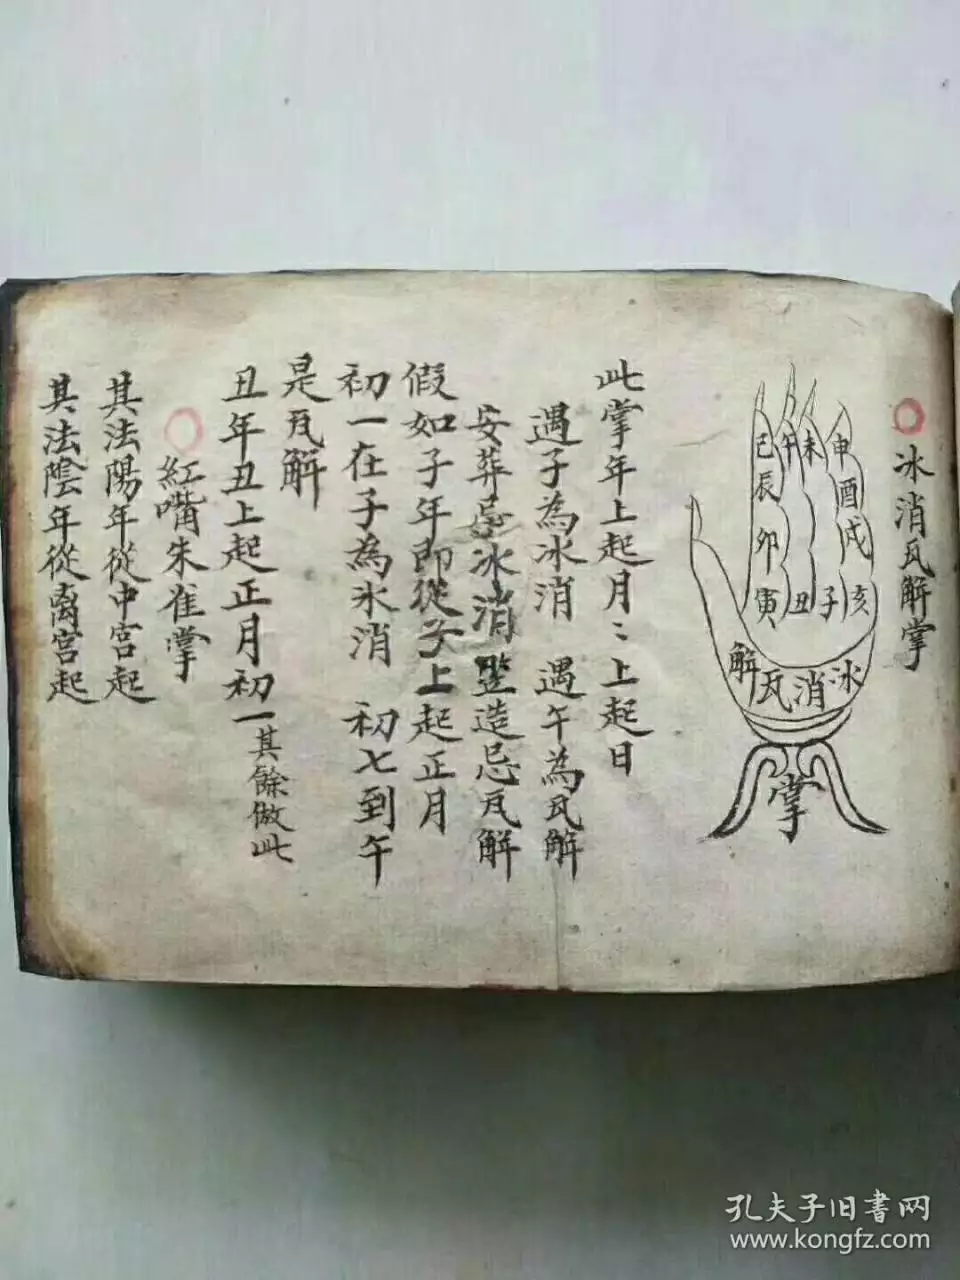 冰消瓦解掌
巳午未申
辰酉
卯戌
寅丑子亥
冰消瓦解
掌
此掌年上起月〻上起日
遇子為冰消 遇午為瓦解
安葬忌冰消竪造忌瓦解
假如子年即從子上起正月
初一在子為氷消 初七到午
是瓦解
丑年丑上起正月初一其餘倣此
紅嘴朱雀掌
其法陽年從中宮起
其法陰年從离宮起
孔夫子旧書网
www.kongfz.com